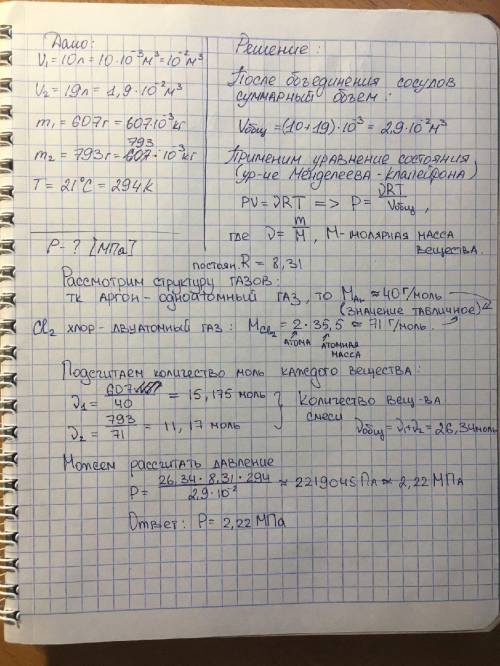 Дано:
V₁ = 10л = 10·10⁻³ м³ = 10⁻² м³
V₂ = 19л = 1,9·10⁻² м³
m₁ = 607г = 607·10⁻³ кг
m₂ = 793г = 793·10⁻³ кг
T = 21°C = 294 K
P - ? [МПа]
Решение:
После объединения сосудов
суммарный объем:
Vобщ = (10+19)·10⁻³ = 2,9·10⁻² м³
Применим уравнение состояния
(ур-ие Менделеева-Клапейрона)
PV = νRT => P = νRT/Vобщ,
где ν = m/M, M-молярная масса
вещества.
постоян. R = 8,31
Рассмотрим структуру газов:
тк Аргон - одноатомный газ, то MAr ≈ 40 г/моль
(значение табличное)
Cl₂ хлор - двуатомный газ: MCl₂ = 2·35,5 ≈ 71 г/моль.
атома атомная
масса
Подсчитаем количество моль каждого вещества:
ν₁ = 607/40 = 15,175 моль
ν₂ = 793/71 = 11,17 моль
Количество вещ-ва
смеси
νобщ = ν₁+ν₂ = 26,34 моль
Можем рассчитать давление
P = 26,34·8,31·294/2,9·10⁻² ≈ 2219045 Па ≈ 2,22 МПа
Ответ: P = 2,22 МПа